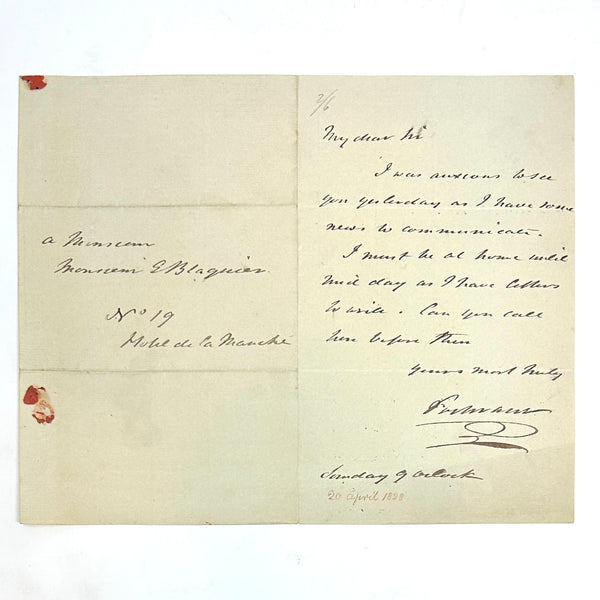 a Monsieur
Monsieur E Blaquier
No 19
Hotel de la Manche
2/6
My dear Sir
I was anxious to see
you yesterday as I have some
news to communicate.
I must be at home until
mid day as I have letters
to write. Can you call
here before then
Yours most truly
Sunday 9 o'clock
20 april 1828